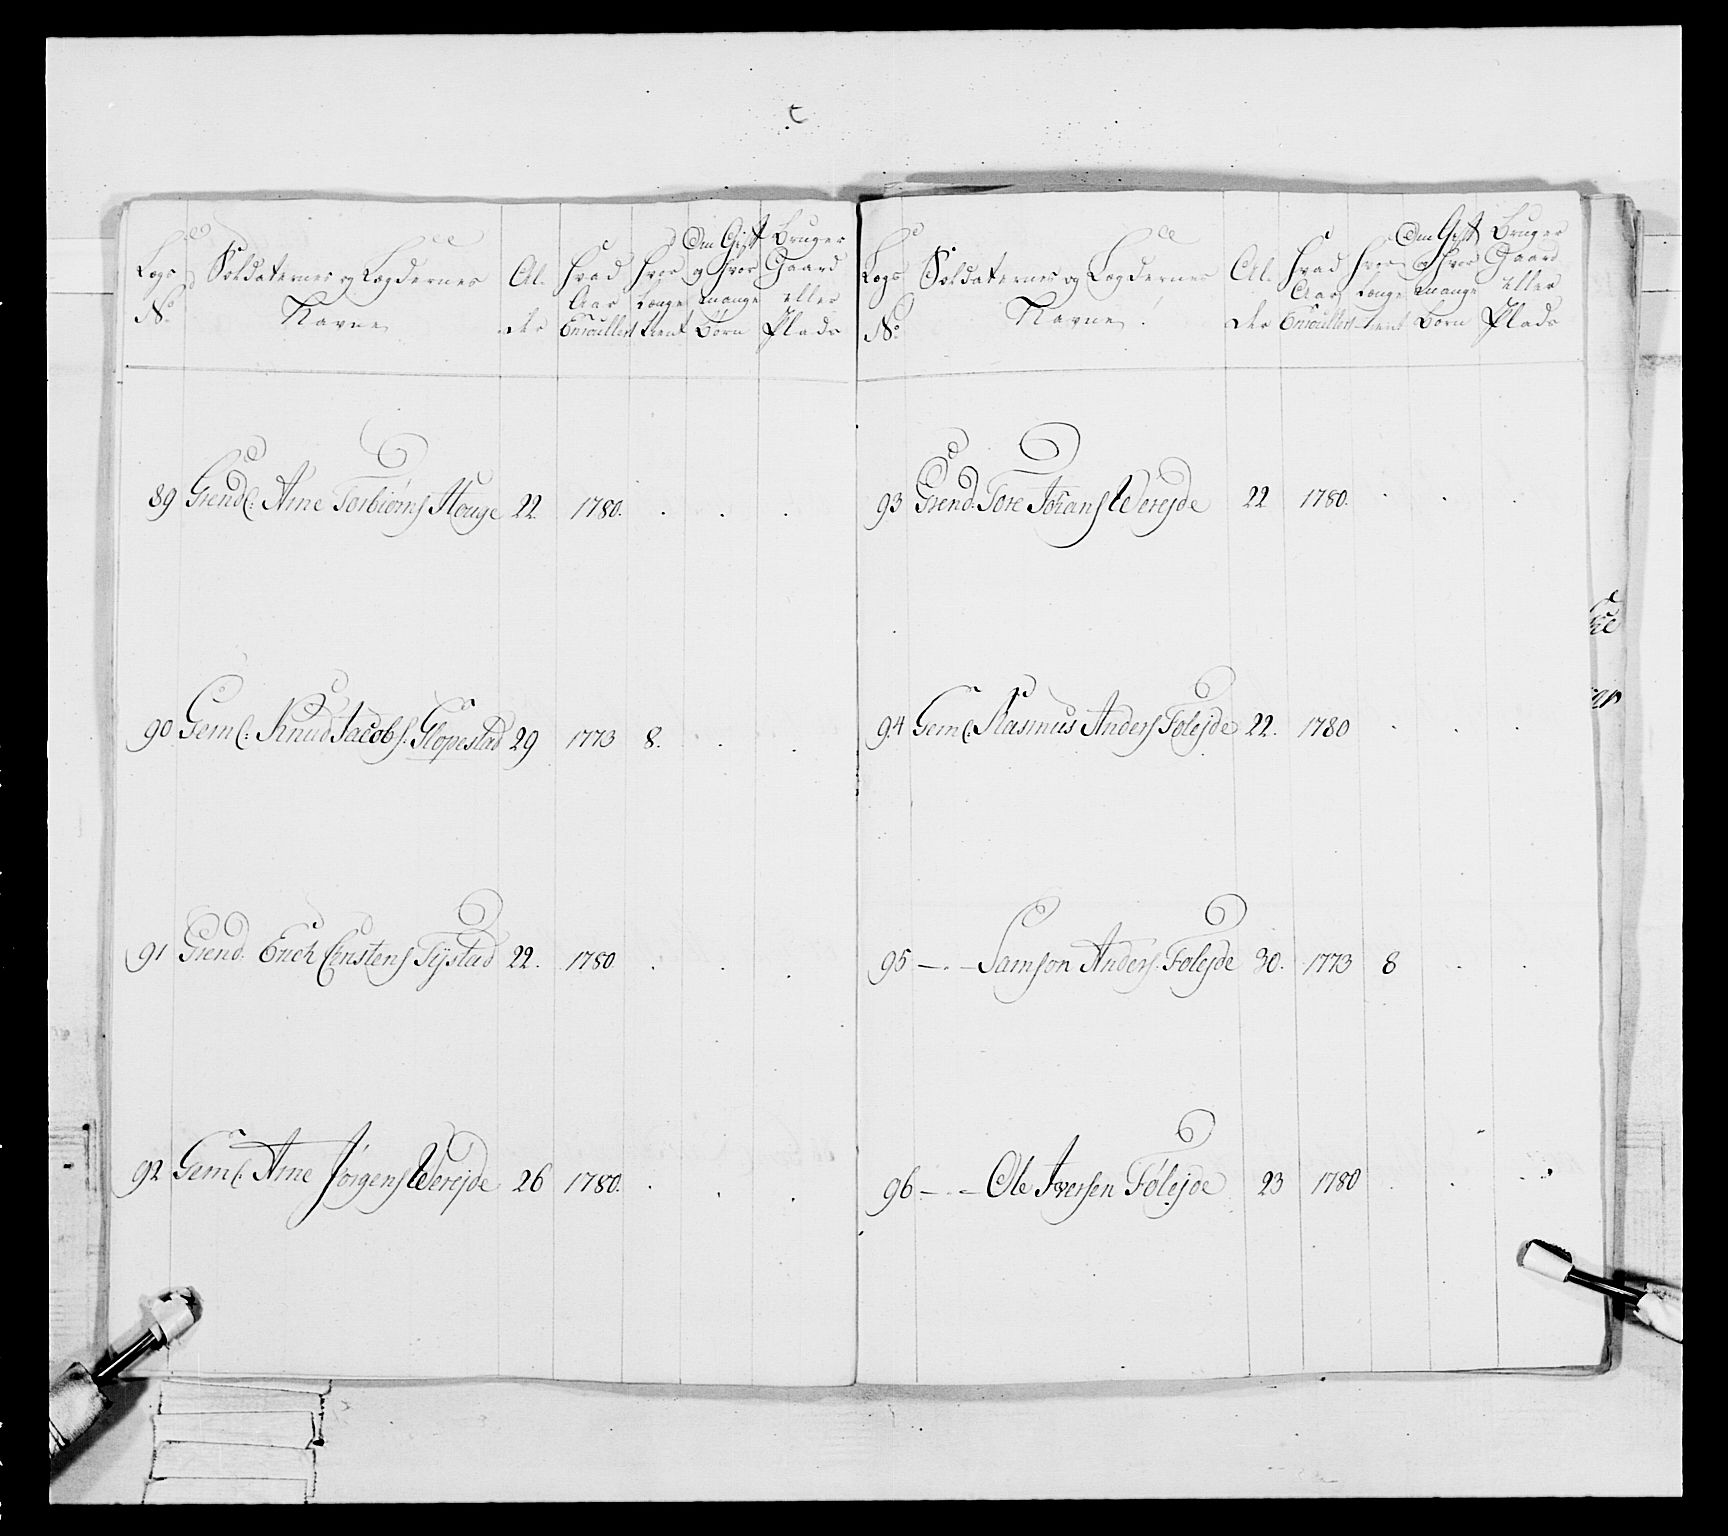 Logs No Soldaternes og Lægdernes Navne Al- der Hvad Aar Enroullert Hvor Længe tient Om Gift og hvor mange Børn Bruger Gaard eller Plads
89 Grendr: Arne Torbiørns Houge 22. 1780. . . .
90 Geml: Knud Jacobs. Glopestad 29 1773 8. . .
91 Grend. Erich Censtens Tystad 22. 1780 . . .
92 Geml. Arne Jørgens Werejde 26 1780. . . .
Logs No Soldaternes og Lægdernes Navne. Al- der Hvad Aar Enroullert Hvor Længe tient Om Gift og hvor mange Børn Bruger Gaard eller Plads
93 Grend. Tore Johans Werejde 22 1780. . . .
94 Geml. Rasmus Anders Folejde 22. 1780 . . .
95 —.— Samson Anders. Folejde 30. 1773 8 . .
96 —.— Ole Iversen Følejde 23 1780 . . .